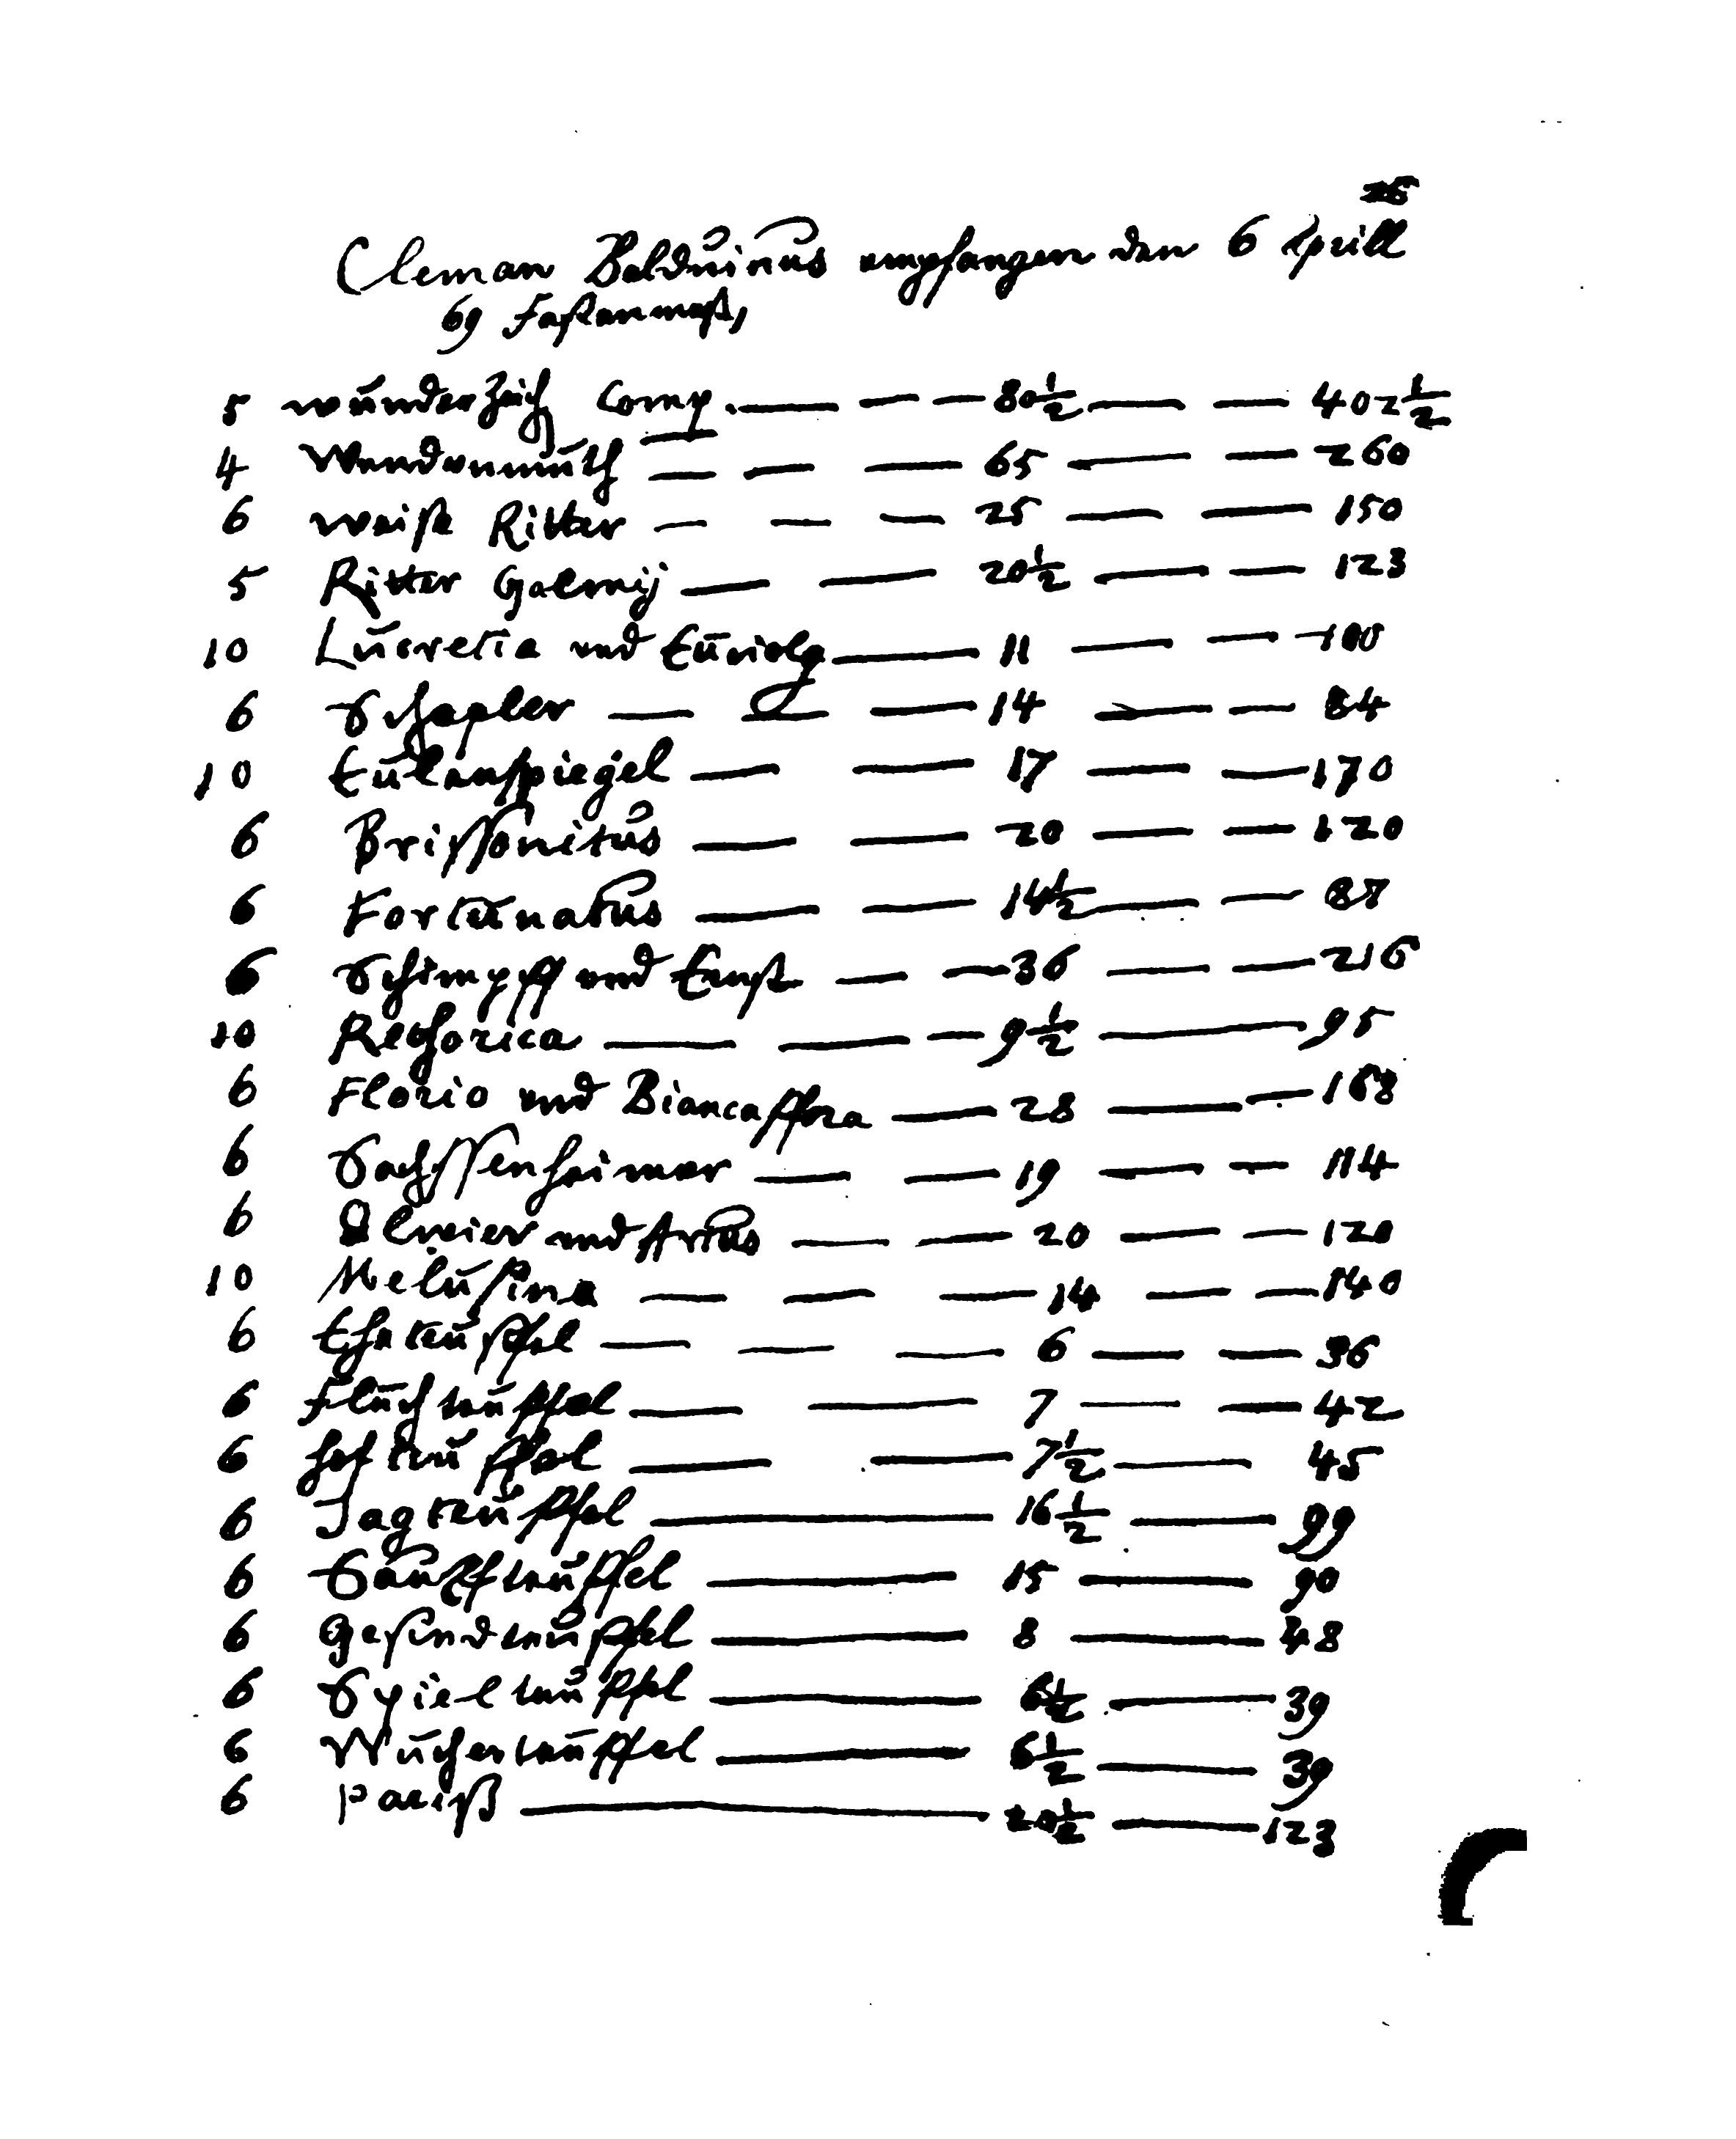 Cleman Balduinus empfangen den 6 Aprill
69 Fastenmeß,
5 wunderzeich Comp. — — — 80½ — — 402½
4 Wendunmuth — — — 65 — — 260
6 weiße Ritter — — — 25 — — 150
5 Ritter Galmij — — 20½ — — 123
10 Lucretia und Euriolg — 11 — — 100
6 Schapler — — — 14 — — 84
10 Eulenspiegel — — 17 — — 170
6 Brissonitus — — 20 — — 120
6 Fortunatus — — 14½ — — 87
6 Schimpff und Ernst — — 36 — — 216
10 Rethorica — — — 9½ — 95
6 Florio und Biancaffora — 28 — — 168
6 Sachssenheimer — — 19 — — 114
6 Olwier und Artus — — 20 — — 120
10 Melusina — — — 14 — — 140
6 Eheteuffel — — — 6 — — 36
6 Fluchteuffel — — 7 — — 42
6 Hofteuffel — — 7½ — 45
6 Jagteuffel — 16½ — 99
6 Saufteuffel — 15 — 90
6 Gesindteuffel — 8 — 48
6 Spielteuffel — 6½ — 39
6 Wucherteuffel — 6½ — 39
6 Pariß — 20½ — 123